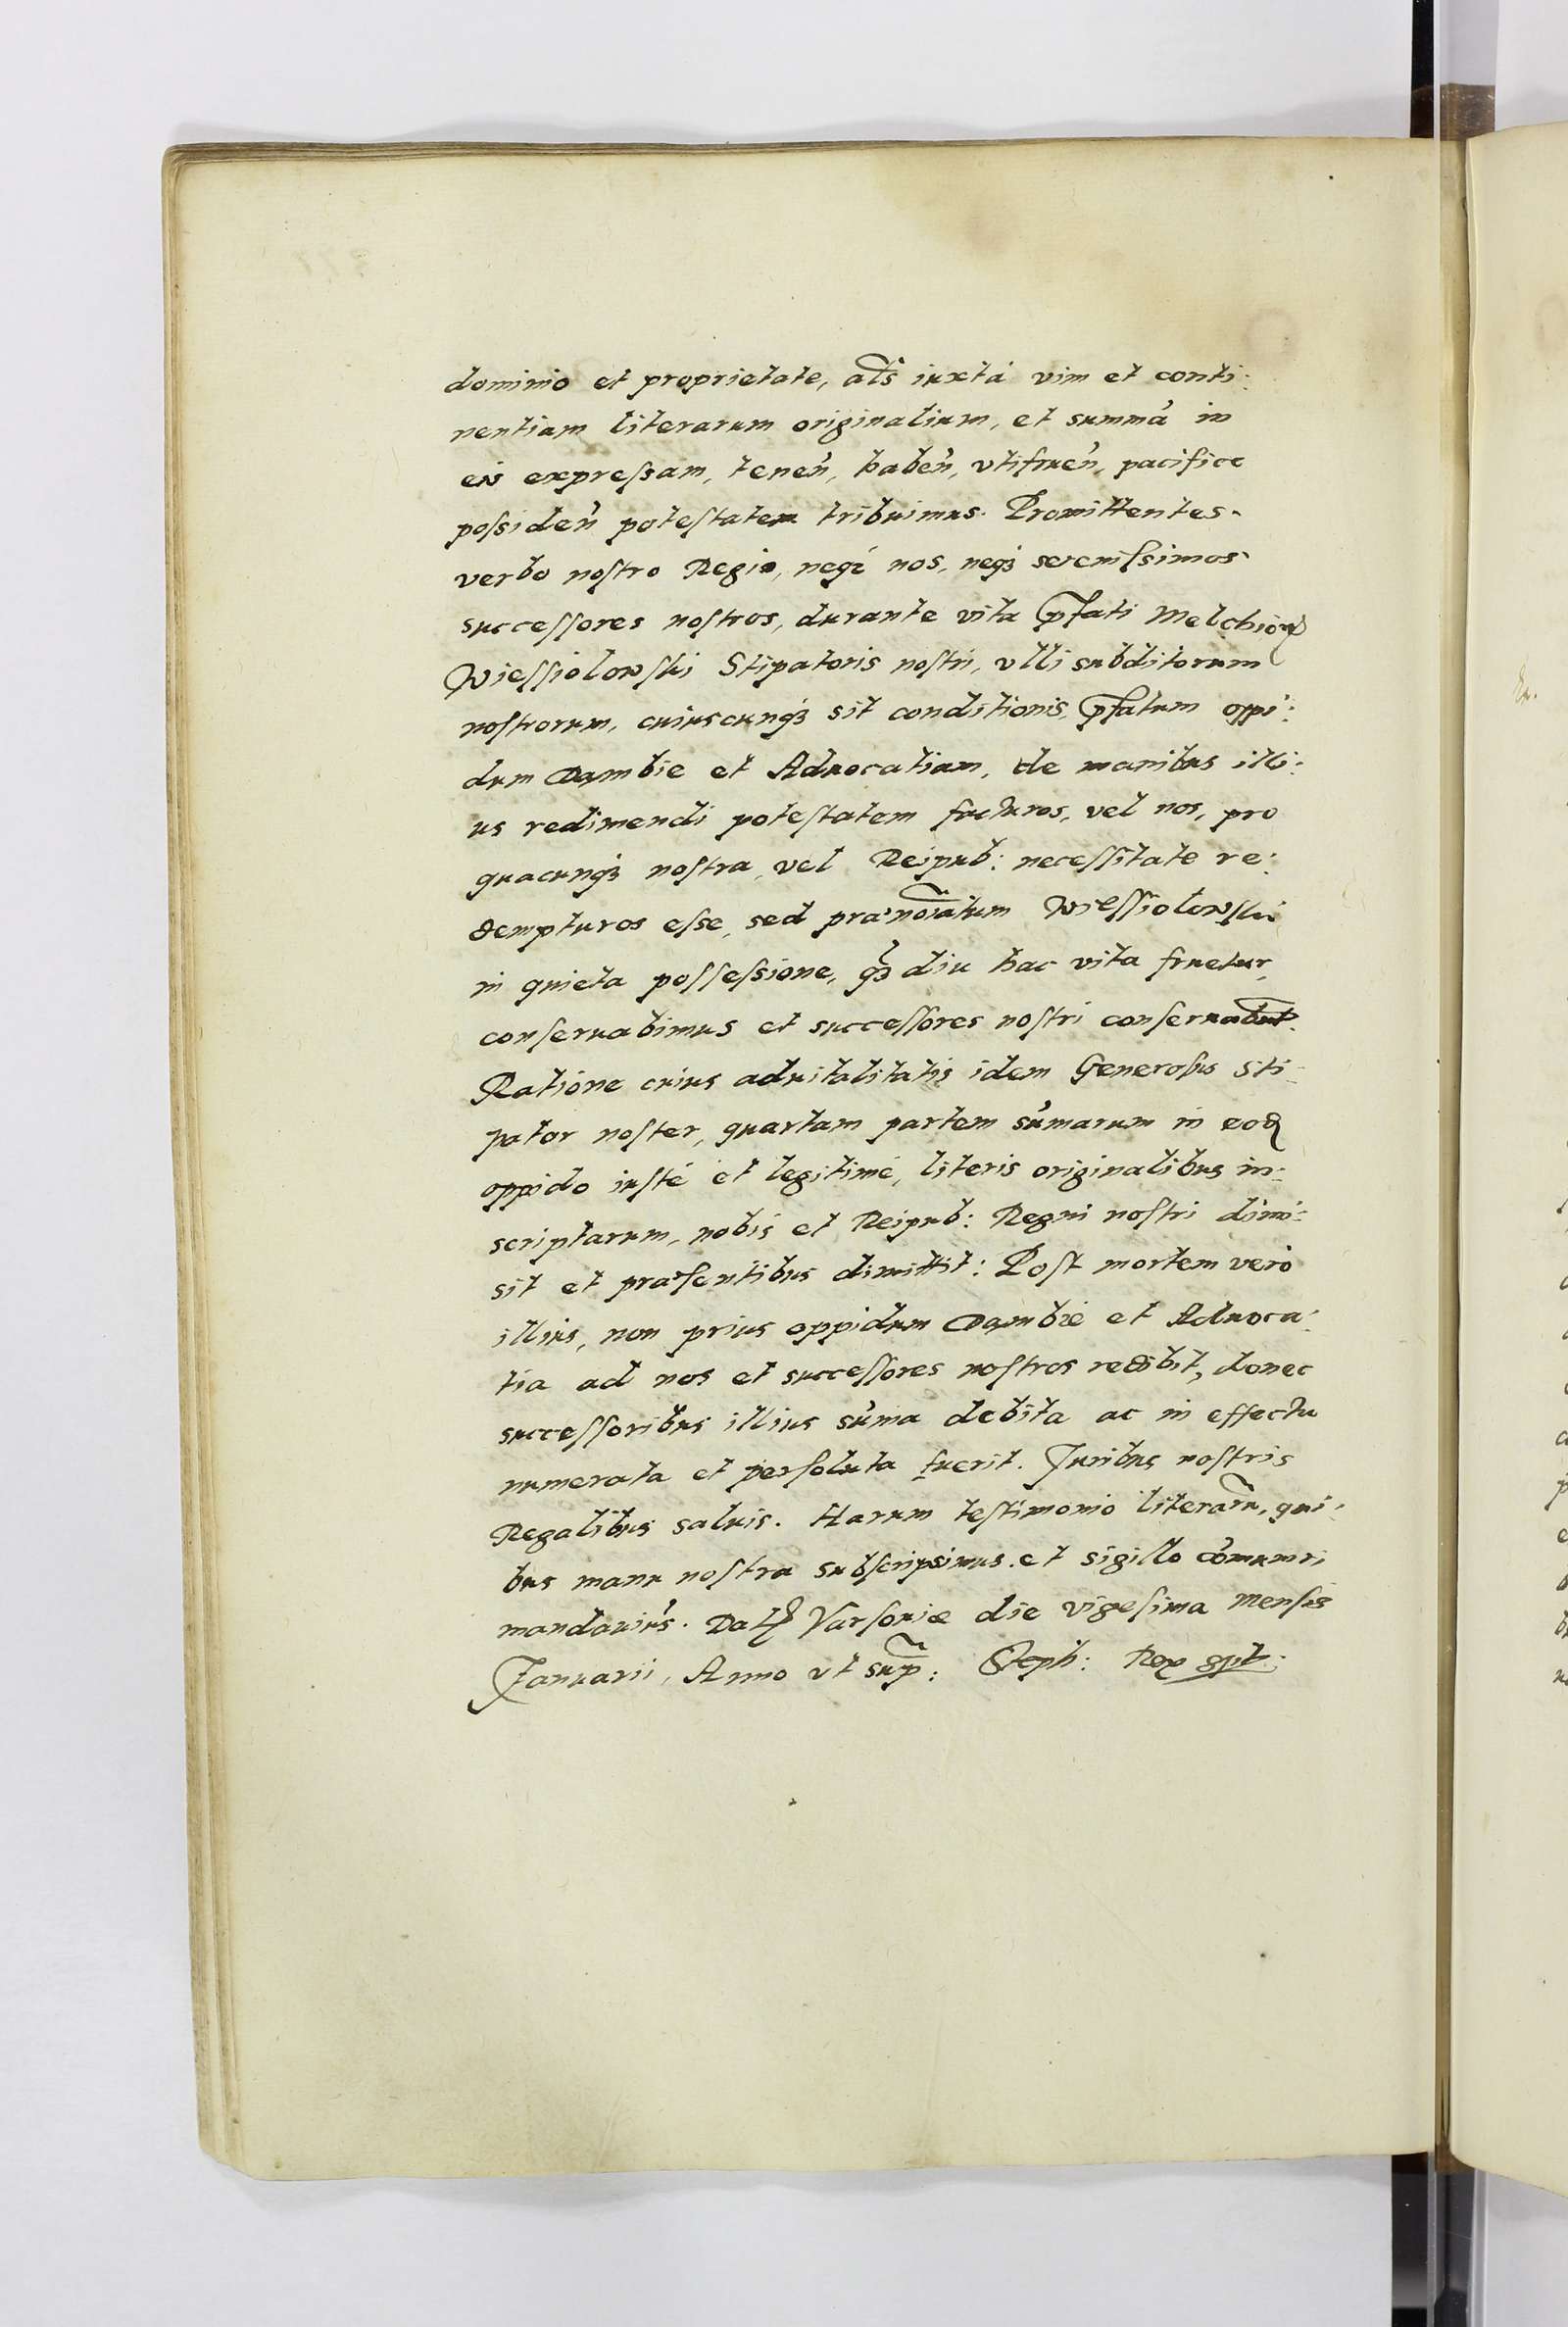 dominio et proprietate, al̃s iuxta vim et conti:
nentiam literarum originalium, et summã in
eis expressam, tenen̄, haben̄, vtifruen̄, pacifice
possiden̄ potestatem tribuimus. Promittentes
verbo nostro Regio, neqz nos, neqz serenissimos
successores nostros, durante vita p̃fati Melchior̃
Wiessiolowski Stipatoris nostri, vlli subditorum
nostrorum, cuiuscunqz sit conditionis, p̃fatum oppi:
dum Dambie et Aduocatiam, de manibus illi:
us redimendi potestatem facturos, vel nos, pro
quacunqz nostra, vel Reipub: necessitate re:
dempturos esse, sed prænoĩatum Wiessiolowski
in quieta possessione, qz̃ diu hac vita fruetur,
conseruabimus et successores nostri conseruabũt.
Ratione cuius aduitalitatis idem Generosus Sti:
pator noster, quartam partem sum̃arum in eod̃
oppido iusté et legitimé, literis originalibus in:
scriptarum, nobis et Reipub: Regni nostri dimi:
sit et præsentibus dimittit: Post mortem verò
illius, non prius oppidum Dambie et Aduoca:
tia ad nos et successores nostros redibit, donec
successoribus illius sum̃a debita ac in effectu
numerata et persoluta fuerit. Juribus nostris
Regalibus saluis. Harum testimonio literarũ, qui:
bus manu nostra subscripsimus. et sigillo com̃uniri
mandauim̃s. Dat̃ Varsouiæ die vigesima Mensis
Januarii, Anno vt sup̃: Steph: Rex sp̃t.